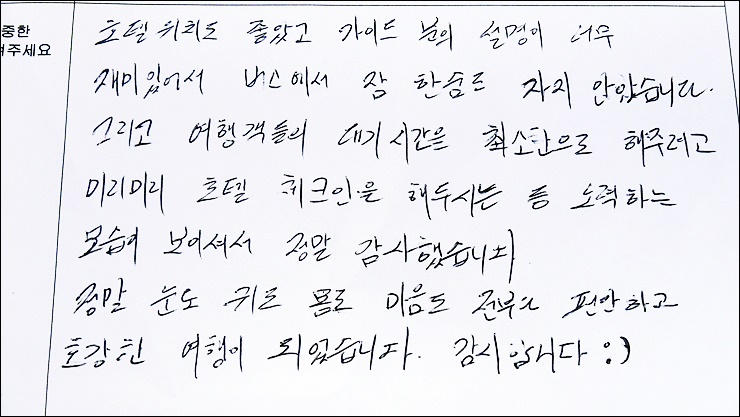 중한
겨주세요
호텔 위치도 좋았고 가이드 분의 설명이 너무
재미있어서 버스에서 잠 한숨도 자지 안았습니다.
그리고 여행객들의 대기시간을 최소한으로 해주려고
미리미리 호텔 체크인을 해두시는 등 노력하는
모습이 보이셔서 정말 감사했습니다
정말 눈도 귀도 몸도 마음도 전부다 편안하고
호강한 여행이 되었습니다. 감사합니다 :)